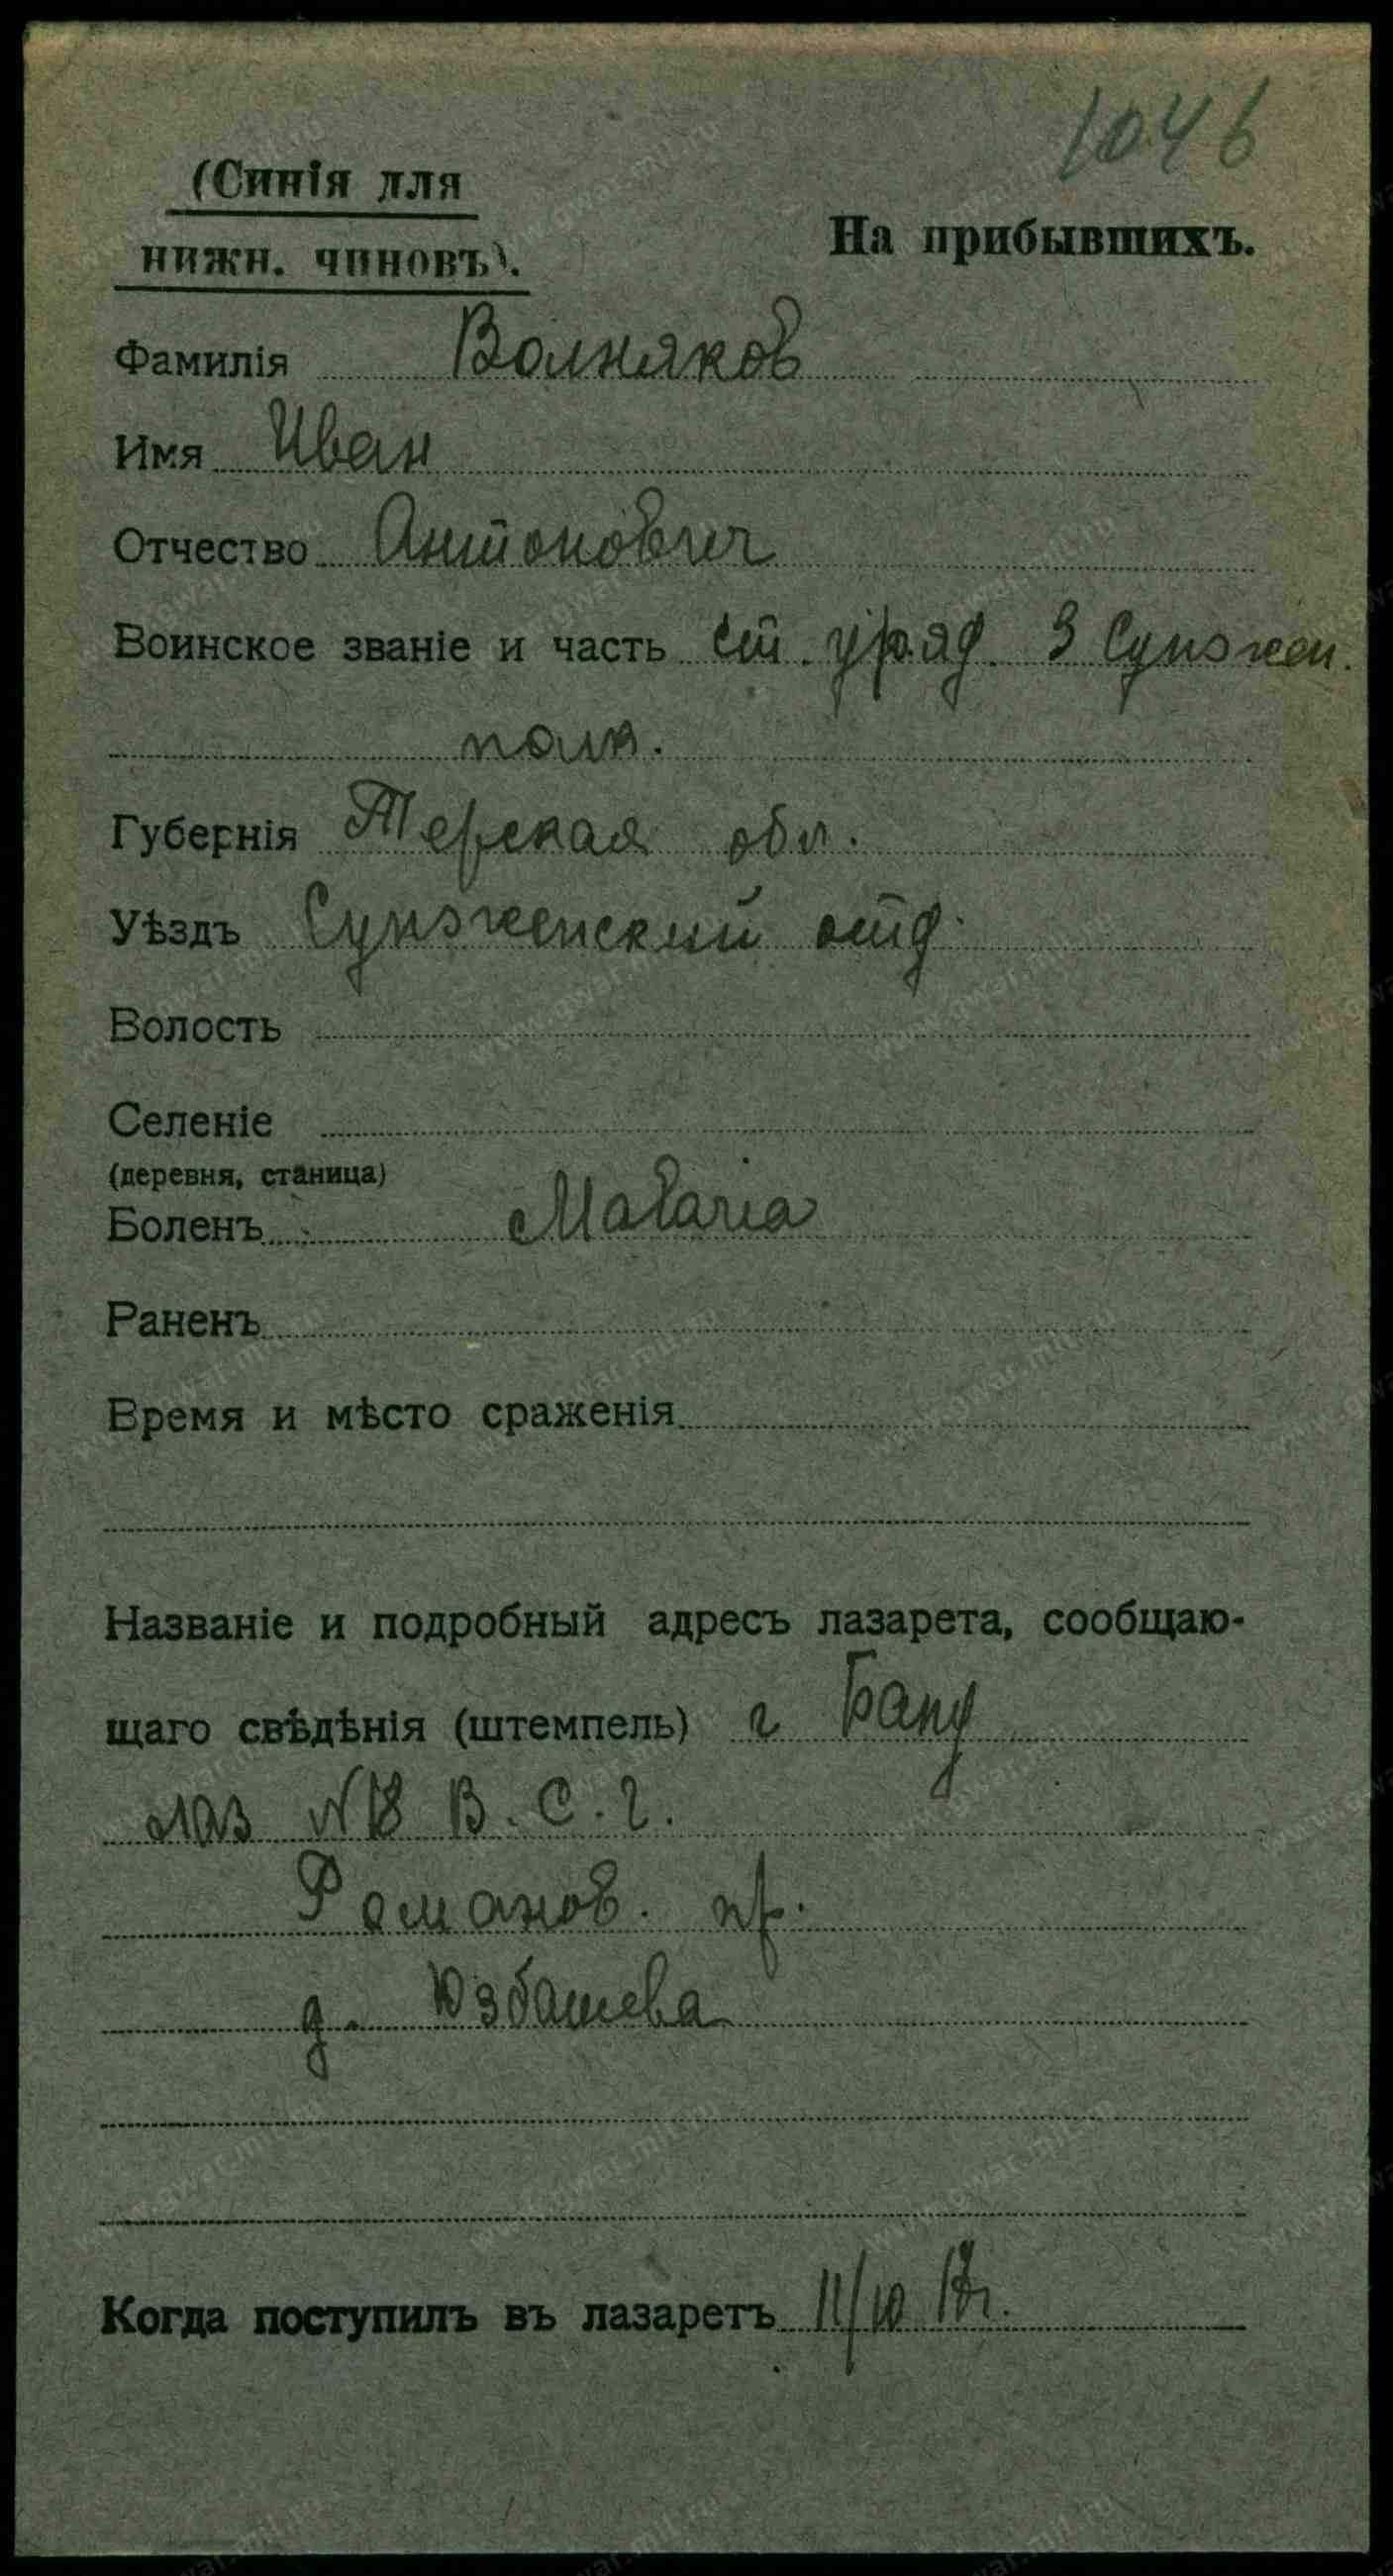 1046
(Синія для
нижн. чиновъ).
На прибывшихъ.
Фамилія Волняков
Имя Иван
Отчество Антонович
Воинское званіе и часть ст. уряд. 3 Сунжен.
полк.
Губернія Терская обл.
Уѣздъ Сунженский отд.
Волость
Селеніе
(деревня, станица)
Боленъ Malaria
Раненъ
Время и мѣсто сраженія
Названіе и подробный адресъ лазарета, сообщаю-
щаго свѣдѣнія (штемпель) г Баку
лаз №18 В. С. Г.
Романов. пр.
д. Юзбашева
Когда поступилъ въ лазаретъ 11/10 17г.